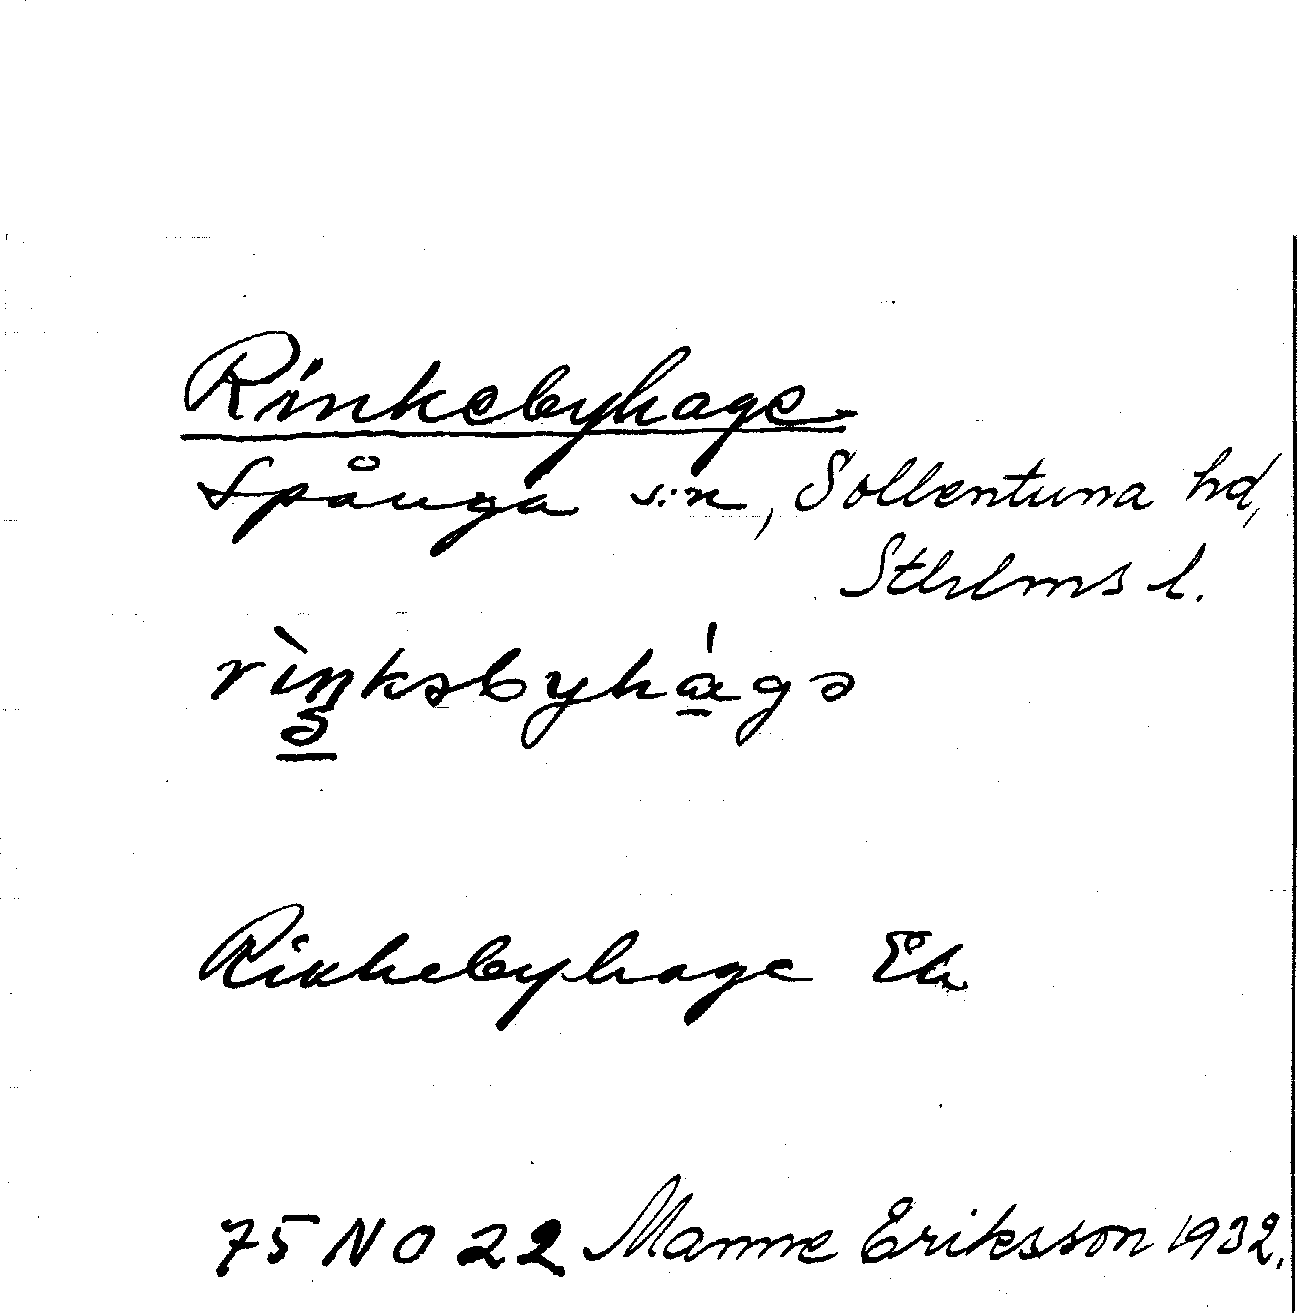 Rinkebyhage
Spånga s:n, Sollentuna hd,
Sthlms l.
rìŋkəbyhágə
Rinkebyhage Ek
75 NO 22 Manne Eriksson 1932.